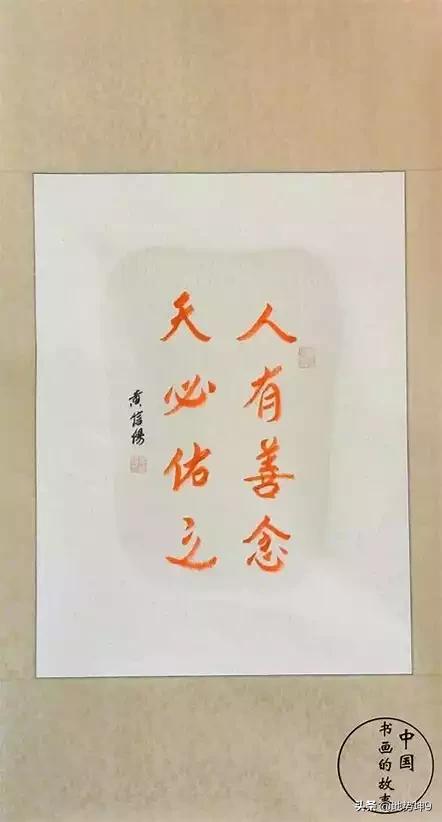 人有善念
天必佑之
黄信阳
中国
书画的故事
头条 @地房坤9